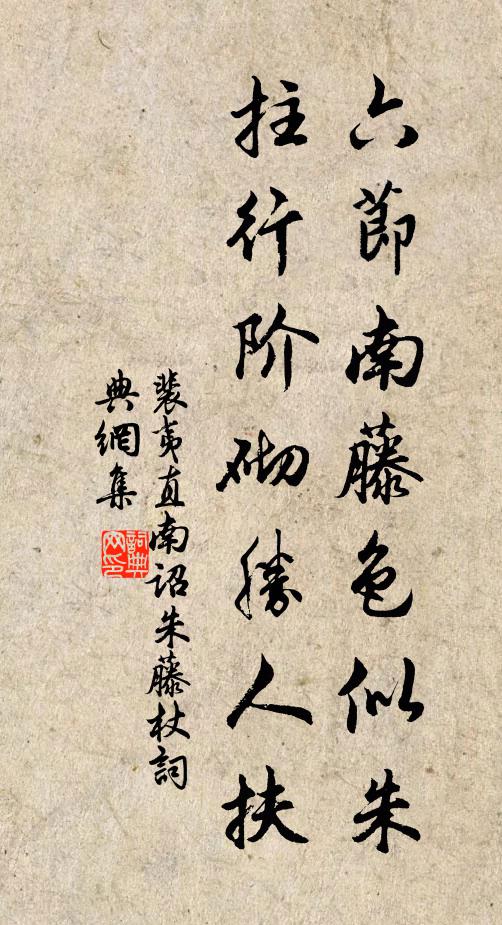 六節南藤色似朱
拄行阶砌勝人扶
裴夷直南诏朱藤杖詞
典網集
詞典
网印